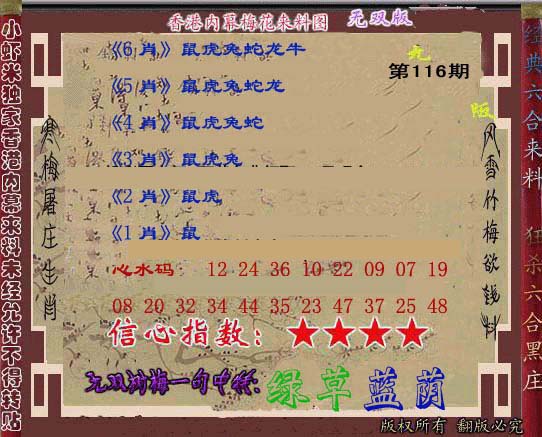 香港内幕梅花来料图 无双版
《6 肖》鼠虎兔蛇龙牛
第116期
《5 肖》鼠虎兔蛇龙
《4 肖》鼠虎兔蛇
《3 肖》鼠虎兔
《2 肖》鼠虎
《1 肖》鼠
心水码： 12 24 36 10 22 09 07 19
08 20 32 34 44 35 23 47 37 25 48
信心指数：★★★★
绿草蓝荫
版权所有 翻版必究
小虾米独家香港内幕来料未经允许不得转贴
寒梅屠庄生肖
风雪竹梅欲钱料
经典六合来料
狂杀六合黑庄